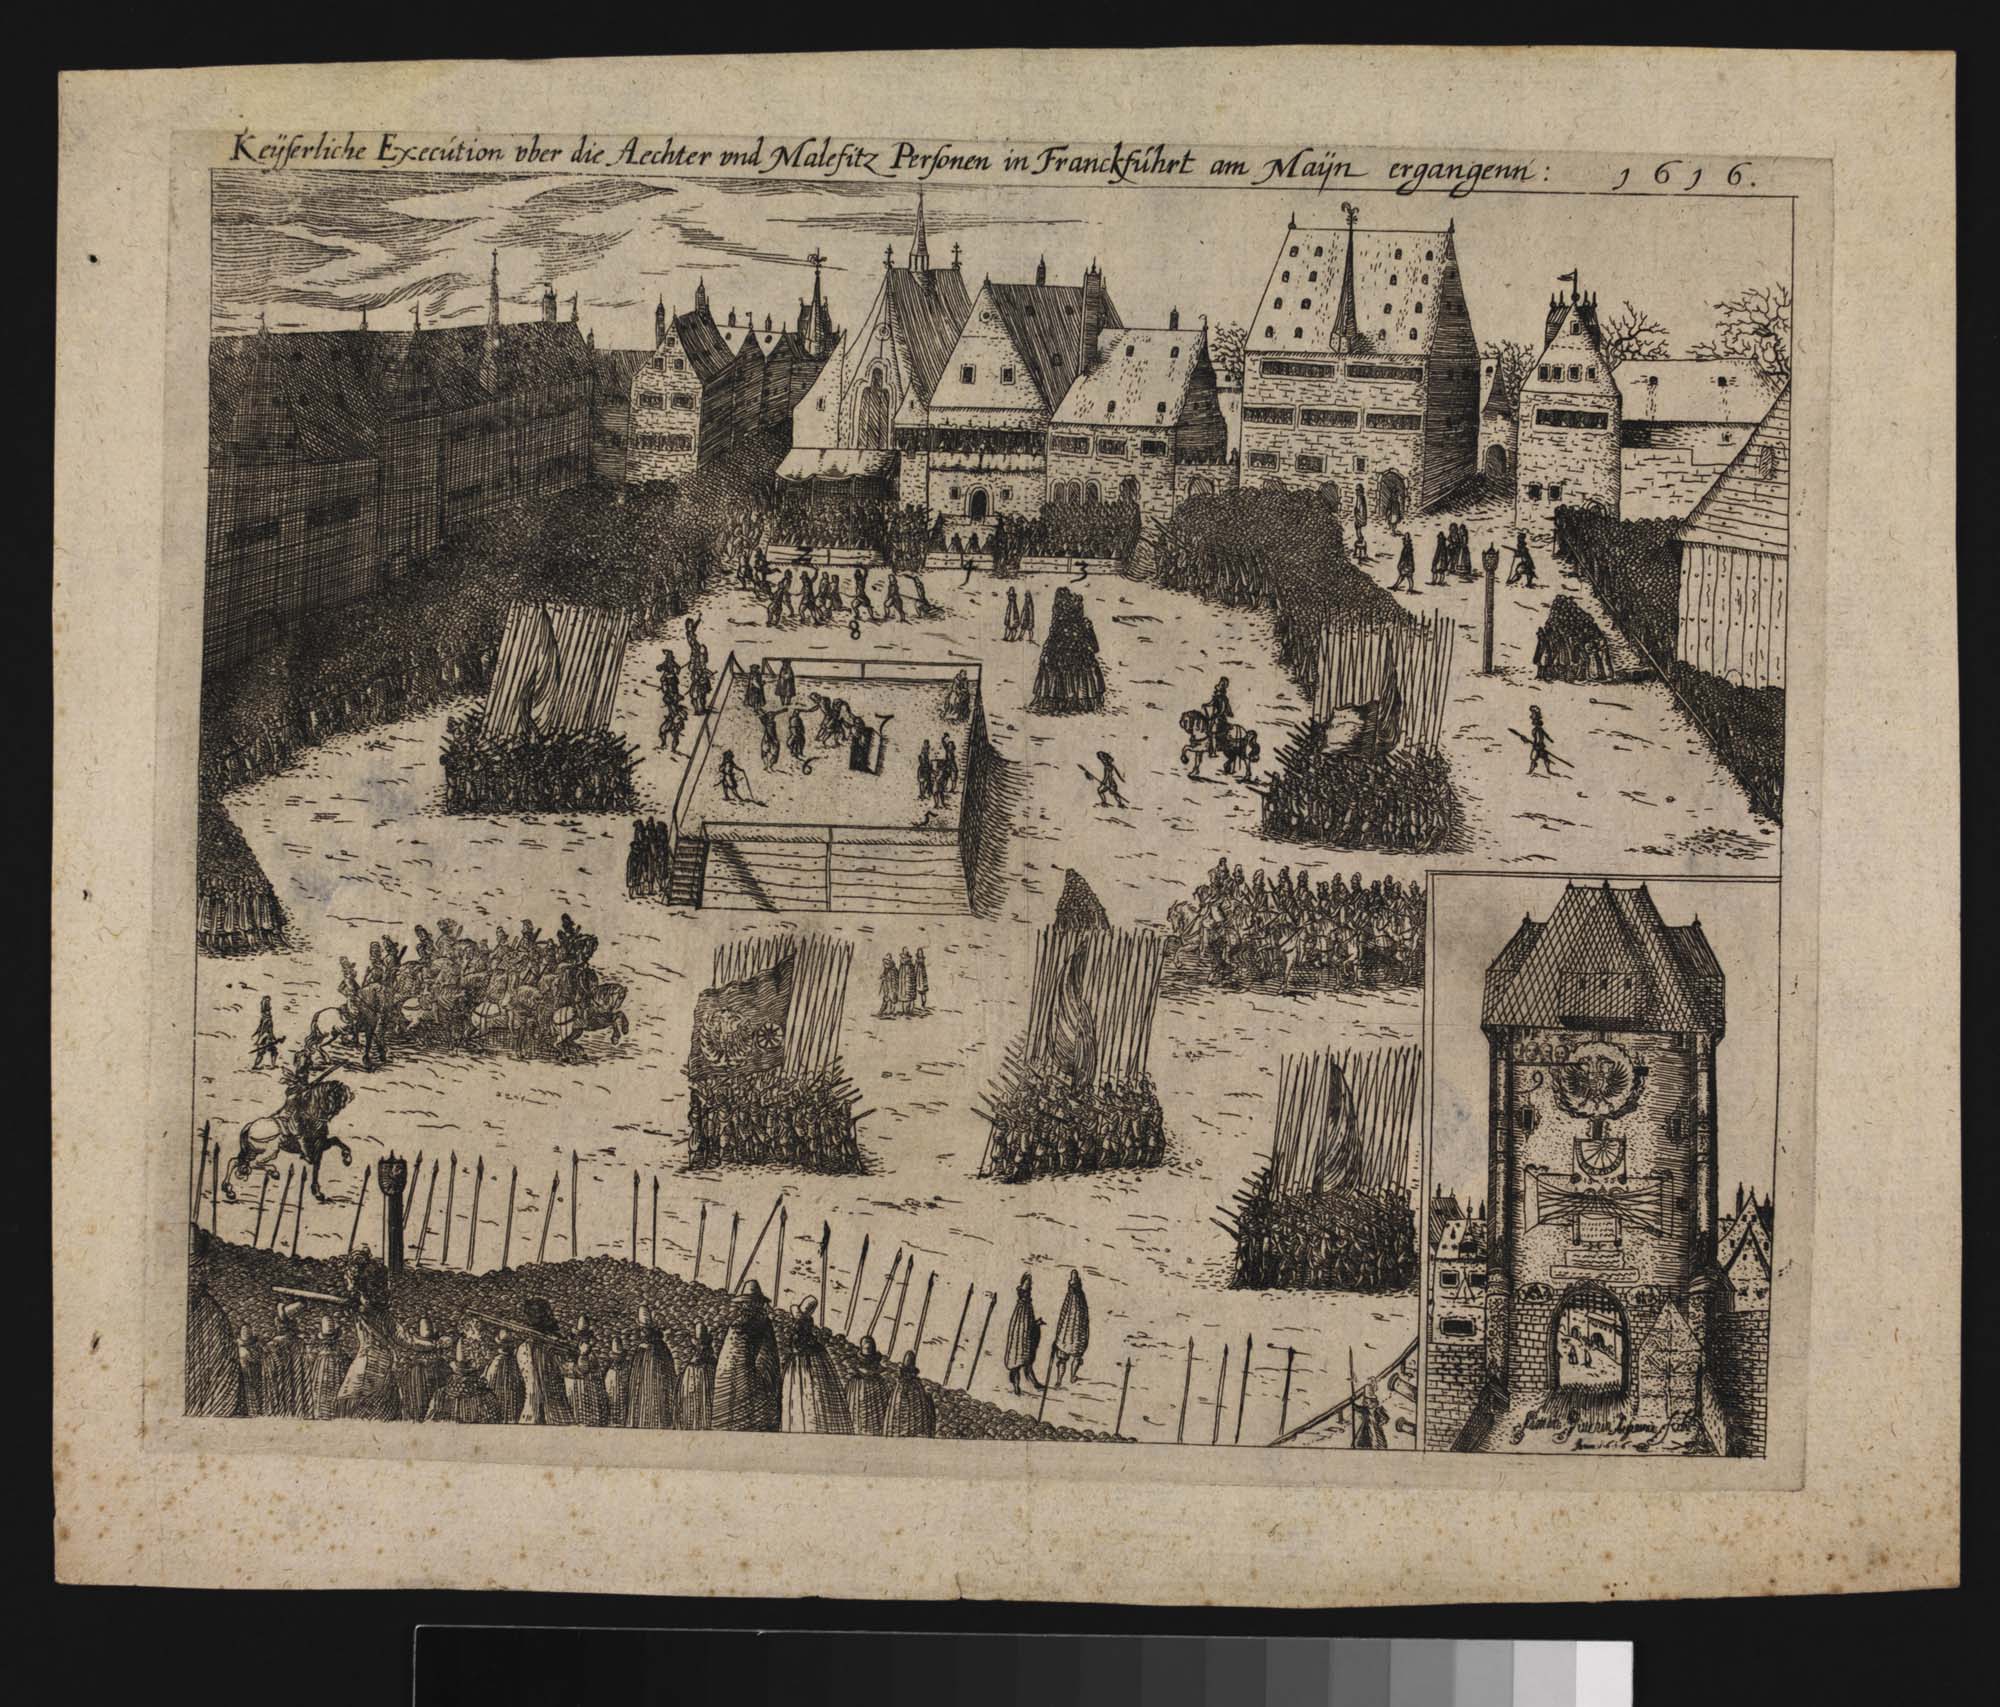 Keÿserliche Execútion vber die Aechter vnd Malefitz Personen in Franckfúhrt am Maÿn ergangenn: 1616.
2
4
3
8
7
6
5
9